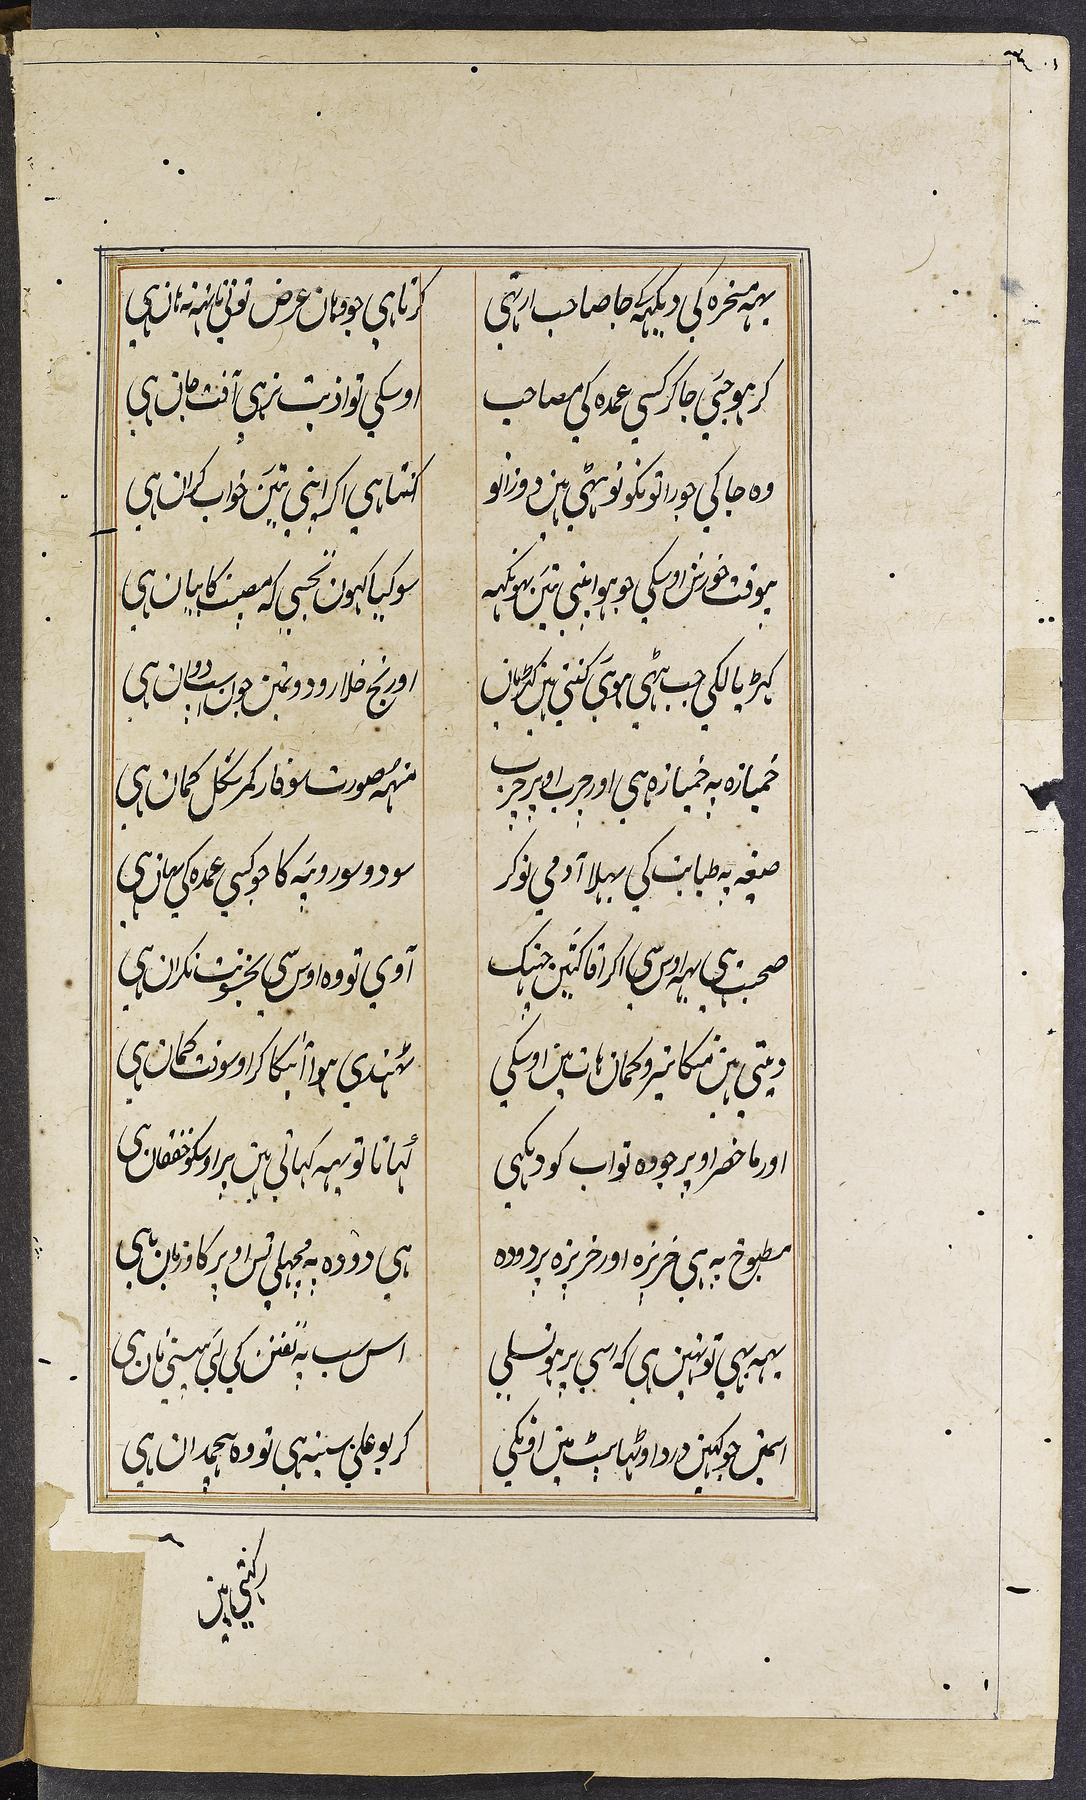 یہہ مسخرہ کی دیکہہ کے جا صاحب ارتہی کرتا ہی جو وہان عرض تونی نا نہہ نہ ہان ہی
کر ہو جئی جا کر کسی عمدہ کی مصاحب اوسکی تو اذیت نرہی آفت جان ہی
وہ جاگی جو راتونکو تو بیٹہی ہین دوزانو کنتا ہی اگر اپنی تئین خواب گران ہی
بیوقت خورش اوسکی جو ہو اپنی تئین بہونکہہ سو کیا کہون تجہسی کہ مصیبت کا بیان ہی
گہڑیالکی جب بیٹہی ہوئی گنتی ہین گہڑیان اور رنج خلا رودونمین جون اسپ دوان ہی
خمیازہ پہ خمیازہ ہی اور چرت اوپر چرت منہہ صورت سوفار کمر شکل کمان ہی
صیغہ پہ طبابت کی بہلا آدمی نوکر سو دو سو روپیہ کا جو کسی عمدہ کی یہان ہی
صحبت ہی یہہ اوس سی اگر آقا کتئین چہینک آوی تو وہ اوس سی بخشونت نگران ہی
دیتی ہین منگا تیر و کمان ہات مین اوسکی ٹہنڈی ہوا آنیکا گر اوسوقت گمان ہی
اور ما حضر اوپر جو وہ نواب کو دیکہی کہانا تو یہہ کہاتی ہین پر اوسکو خفقان ہی
مطبوخ پہ ہی خربزہ اور خربزہ پر دودہ ہی دودہ پہ مچہلی تس اوپر گاو زبان ہی
یہہ بہی تو نہین ہی کہ اسی پر ہو تسلی اس سب پہ تفنن کی لئی بیسنی نان ہی
اسمین جو کہین درد اوٹہا پیٹ مین اونکی گر بو علی سینہ ہی تو وہ ہیچمدان ہی
رکہتی ہین